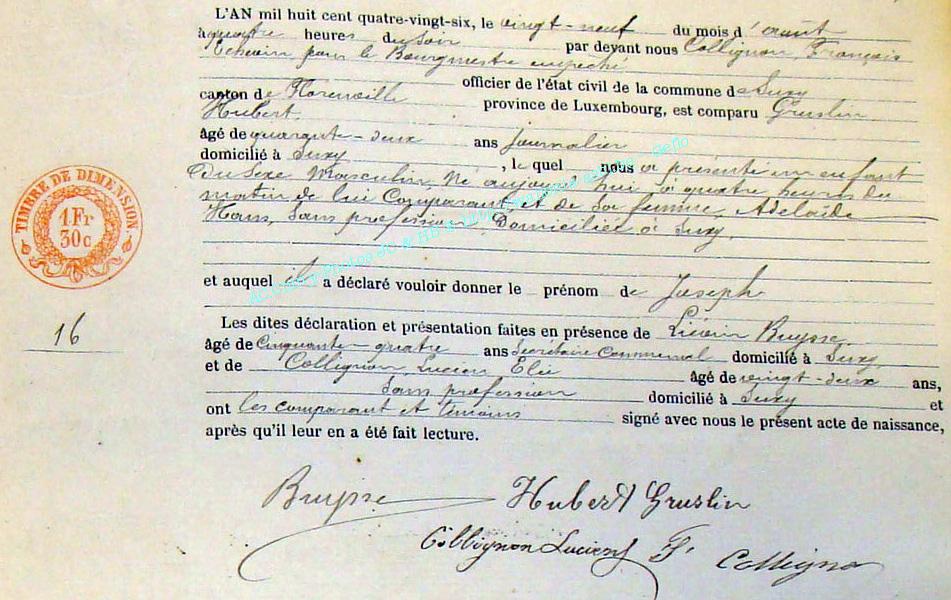 L'AN mil huit cent quatre-vingt-six, le vingt-neuf du mois d'août
à quatre heures du soir par devant nous Collignon, François
Echevin pour le Bourgmestre empeché
officier de l'état civil de la commune de Suxy
canton de Florenville province de Luxembourg, est comparu Gruslin
Hubert.
âgé de quarante-deux ans journalier
domicilié à Suxy, le quel nous a présenté un enfant
du sexe Masculin, Né aujourd'hui à quatre heures du
matin de lui Comparant, et de Sa femme, Adelaïde
Hans, Sans profession, Domiciliée à Suxy.
et auquel il a déclaré vouloir donner le prénom de Joseph
TIMBRE DE DIMENSION.
1 Fr
30c
16
Les dites déclaration et présentation faites en présence de Buysse,
âgé de Cinquante-quatre ans Secrétaire Communal domicilié à Suxy
et de Collignon, Lucien Elie âgé de vingt-deux ans,
Sans profession domicilié à Suxy et
ont les comparant et témoins signé avec nous le présent acte de naissance,
après qu'il leur en a été fait lecture.
Buysse Hubert Gruslin
Collignon Lucien F. Collignon